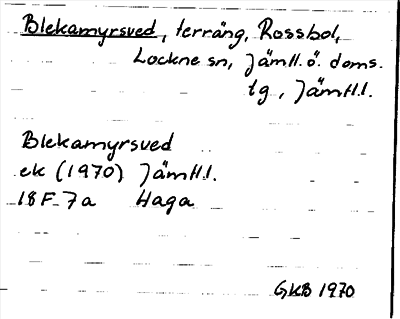 Blekamyrsved, terräng, Rossbol,
Lockne sn, Jämtl. ö. doms.
tg, Jämtl.l.
Blekamyrsved
ek (1970) Jämtl.l.
18F 7a Haga
GKB 1970